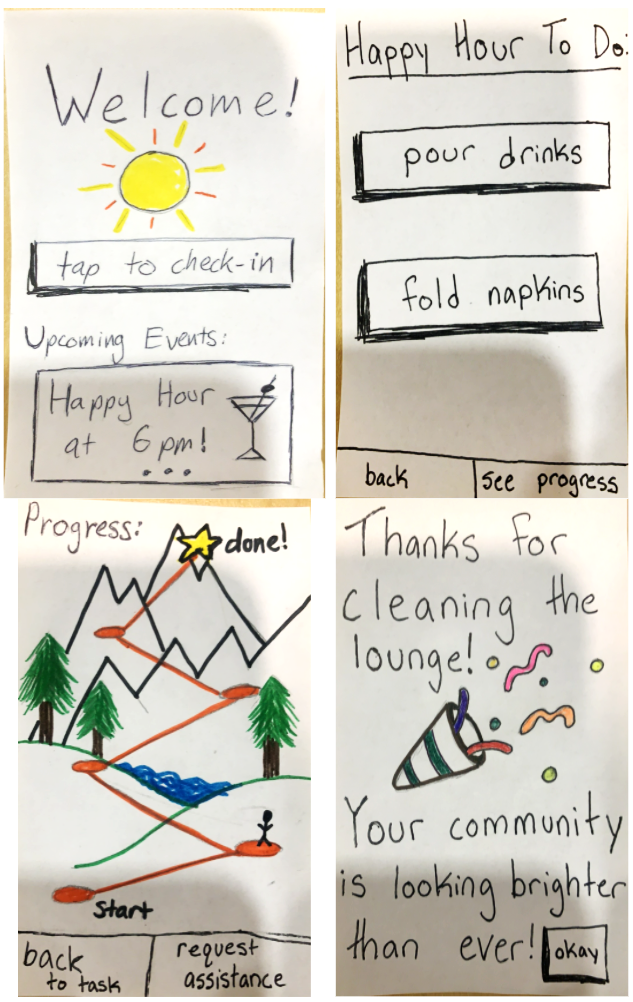 Welcome!
tap to check-in
Upcoming Events:
Happy Hour
at 6pm!
Happy Hour To Do:
pour drinks
fold napkins
back
see progress
Progress:
done!
Start
back
to task
request
assistance
Thanks for
cleaning the
lounge!
Your community
is looking brighter
than ever!
okay